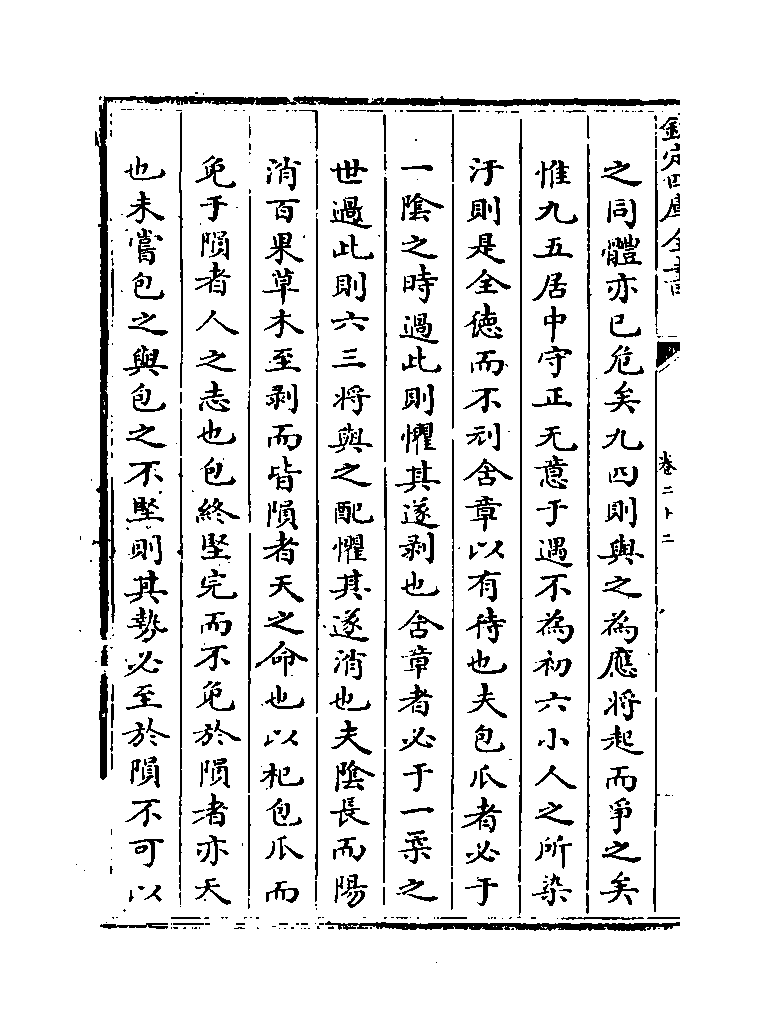 欽定四庫全書
卷二十二
之同體亦已危矣九四則與之為應將起而爭之矣
惟九五居中守正无意于遇不為初六小人之所染
汙則是全德而不刓舍章以有待也夫包瓜者必于
一陰之時過此則懼其遂剥也舍章者必于一䒶之
世過此則六三將與之配懼其遂消也夫陰長而陽
消百果草木至剥而皆隕者天之命也以杞包瓜而
免于隕者人之志也包終堅完而不免於隕者亦天
也未嘗包之與包之不堅則其勢必至於隕不可以